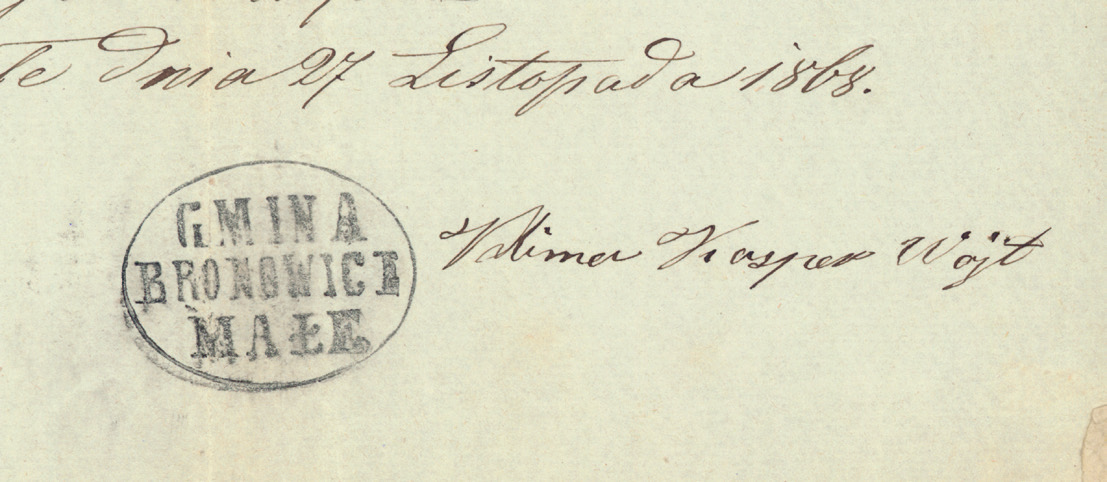 le dnia 27 Listopada 1868.
GMINA
BRONOWICE
MAŁE
Klima Kasper Wójt